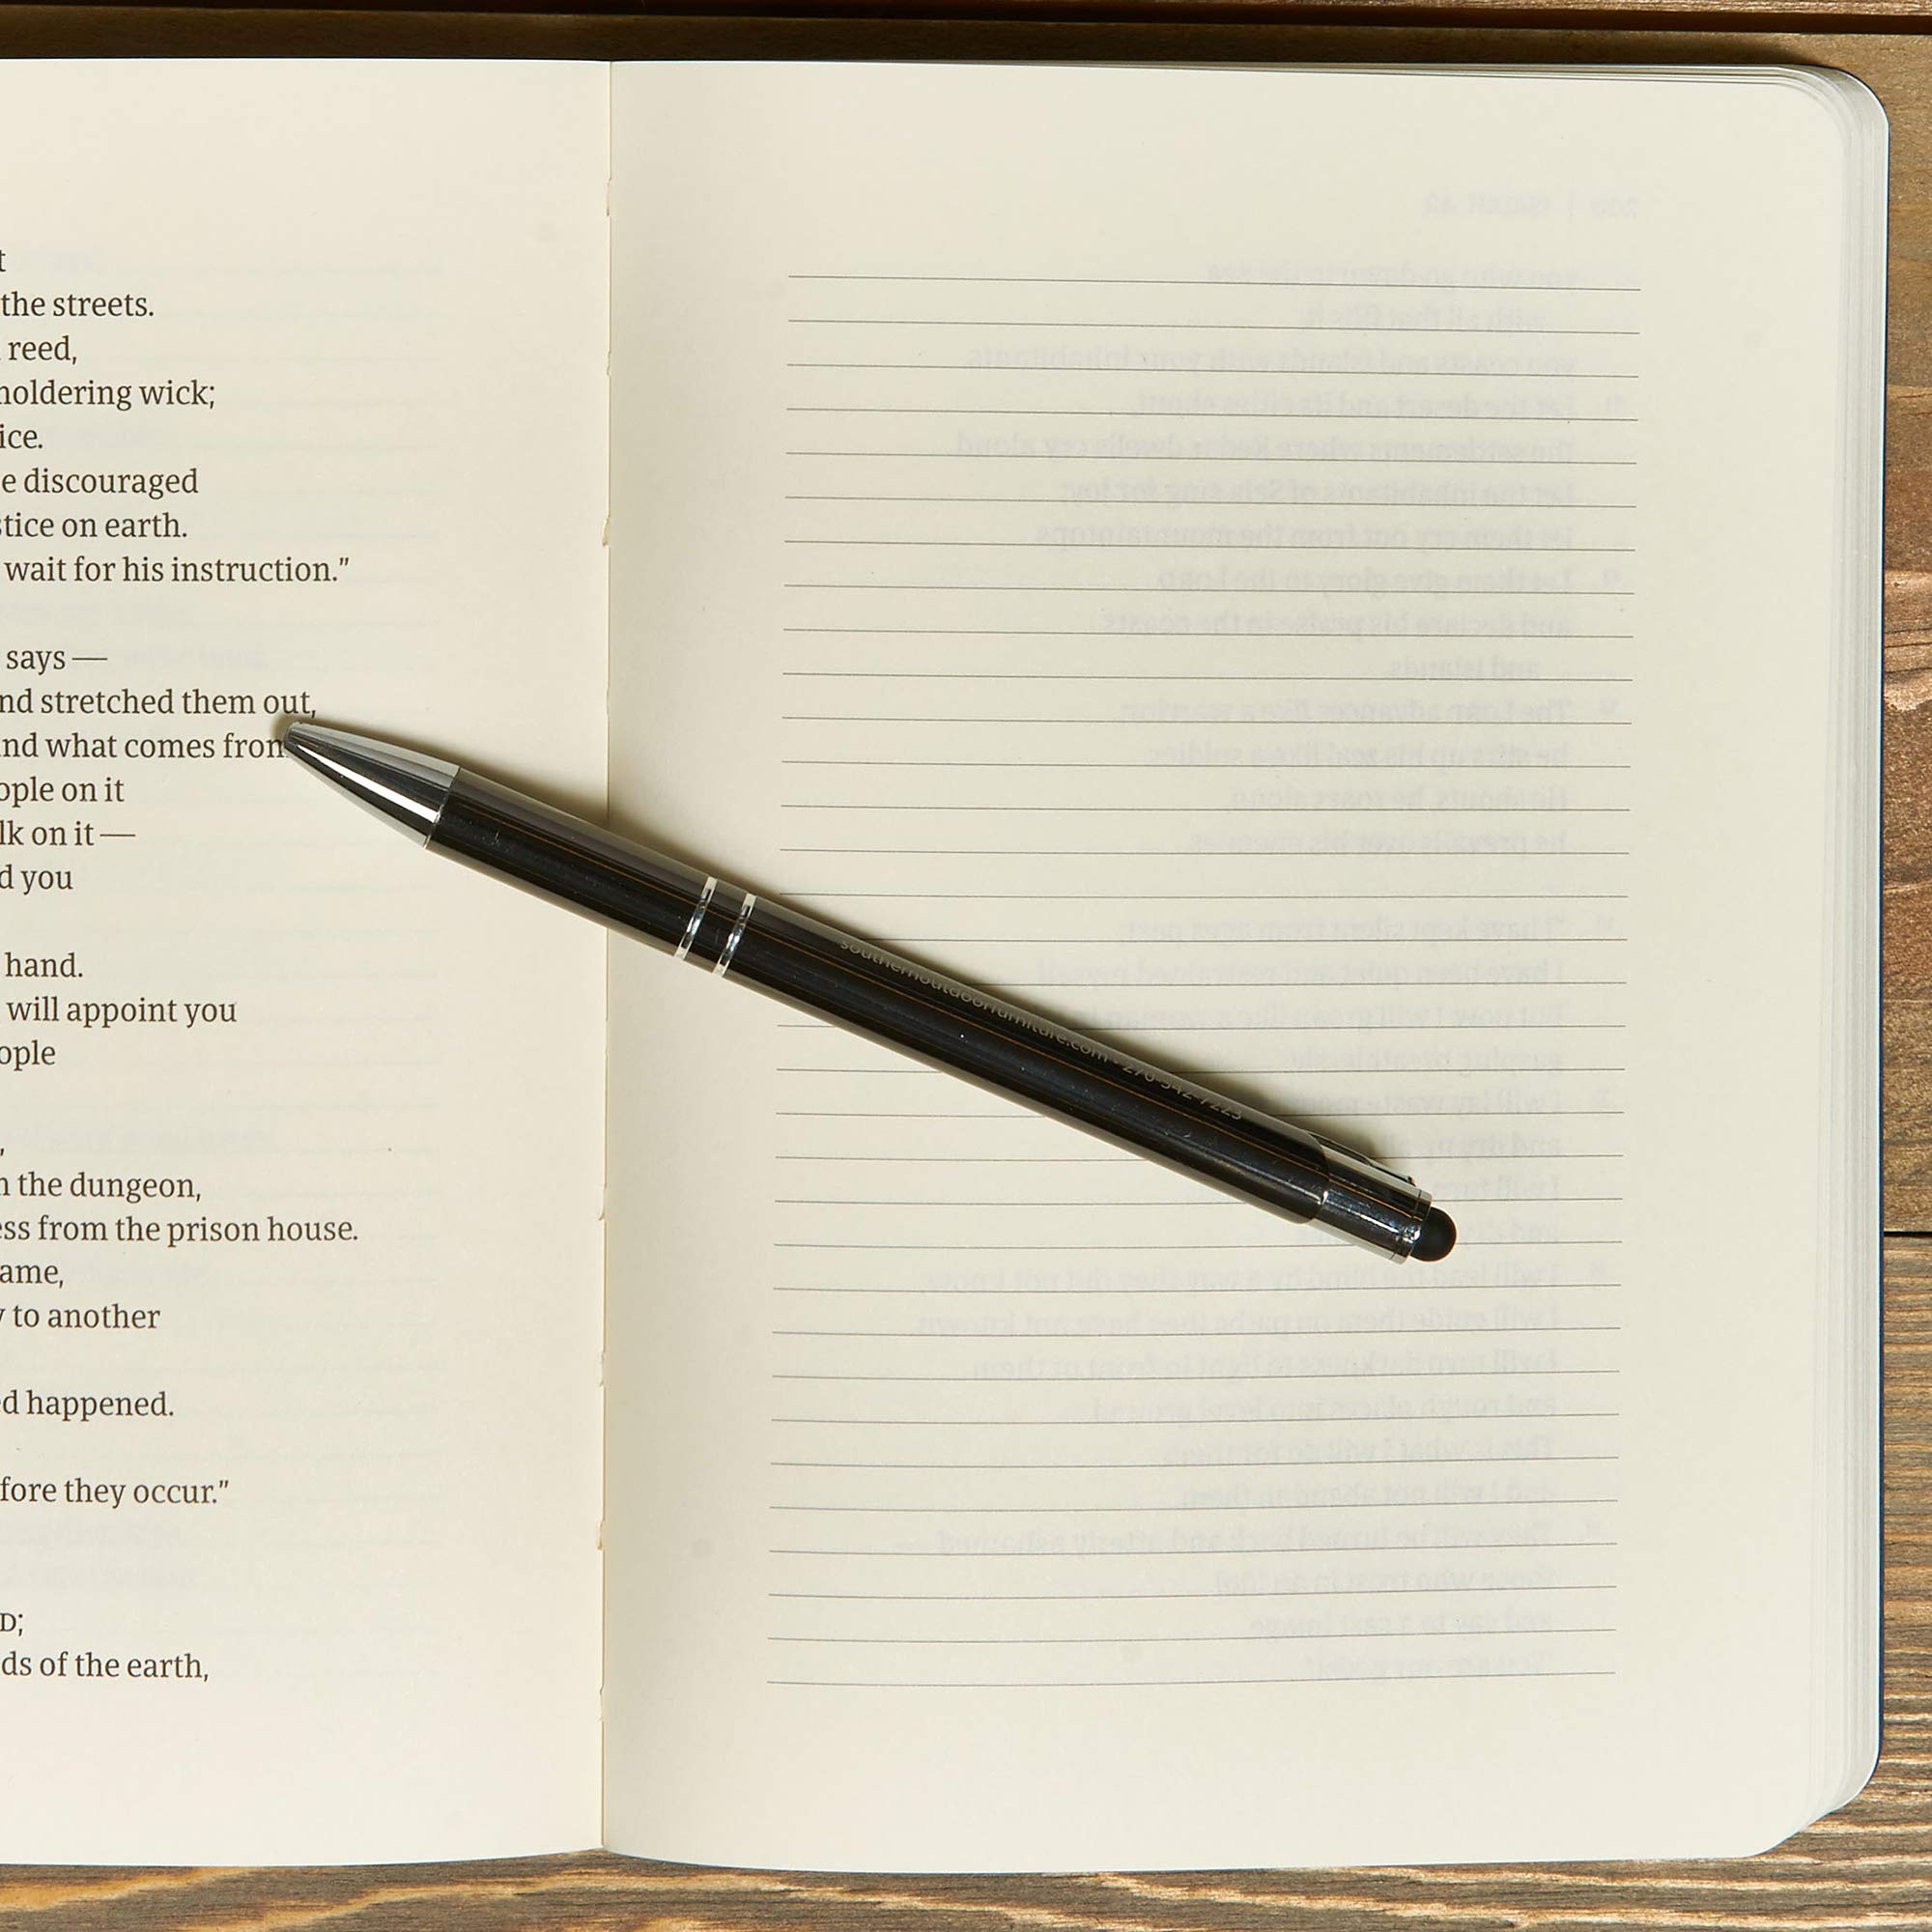 t
the streets.
reed,
moldering wick;
ice.
e discouraged
stice on earth.
wait for his instruction."
says —
nd stretched them out,
and what comes from
ople on it
lk on it —
d you
hand.
will appoint you
ople
,
n the dungeon,
ess from the prison house.
ame,
y to another
ed happened.
fore they occur."
D;
ds of the earth,
southernoutdoorfurniture.com • 270-542-7223